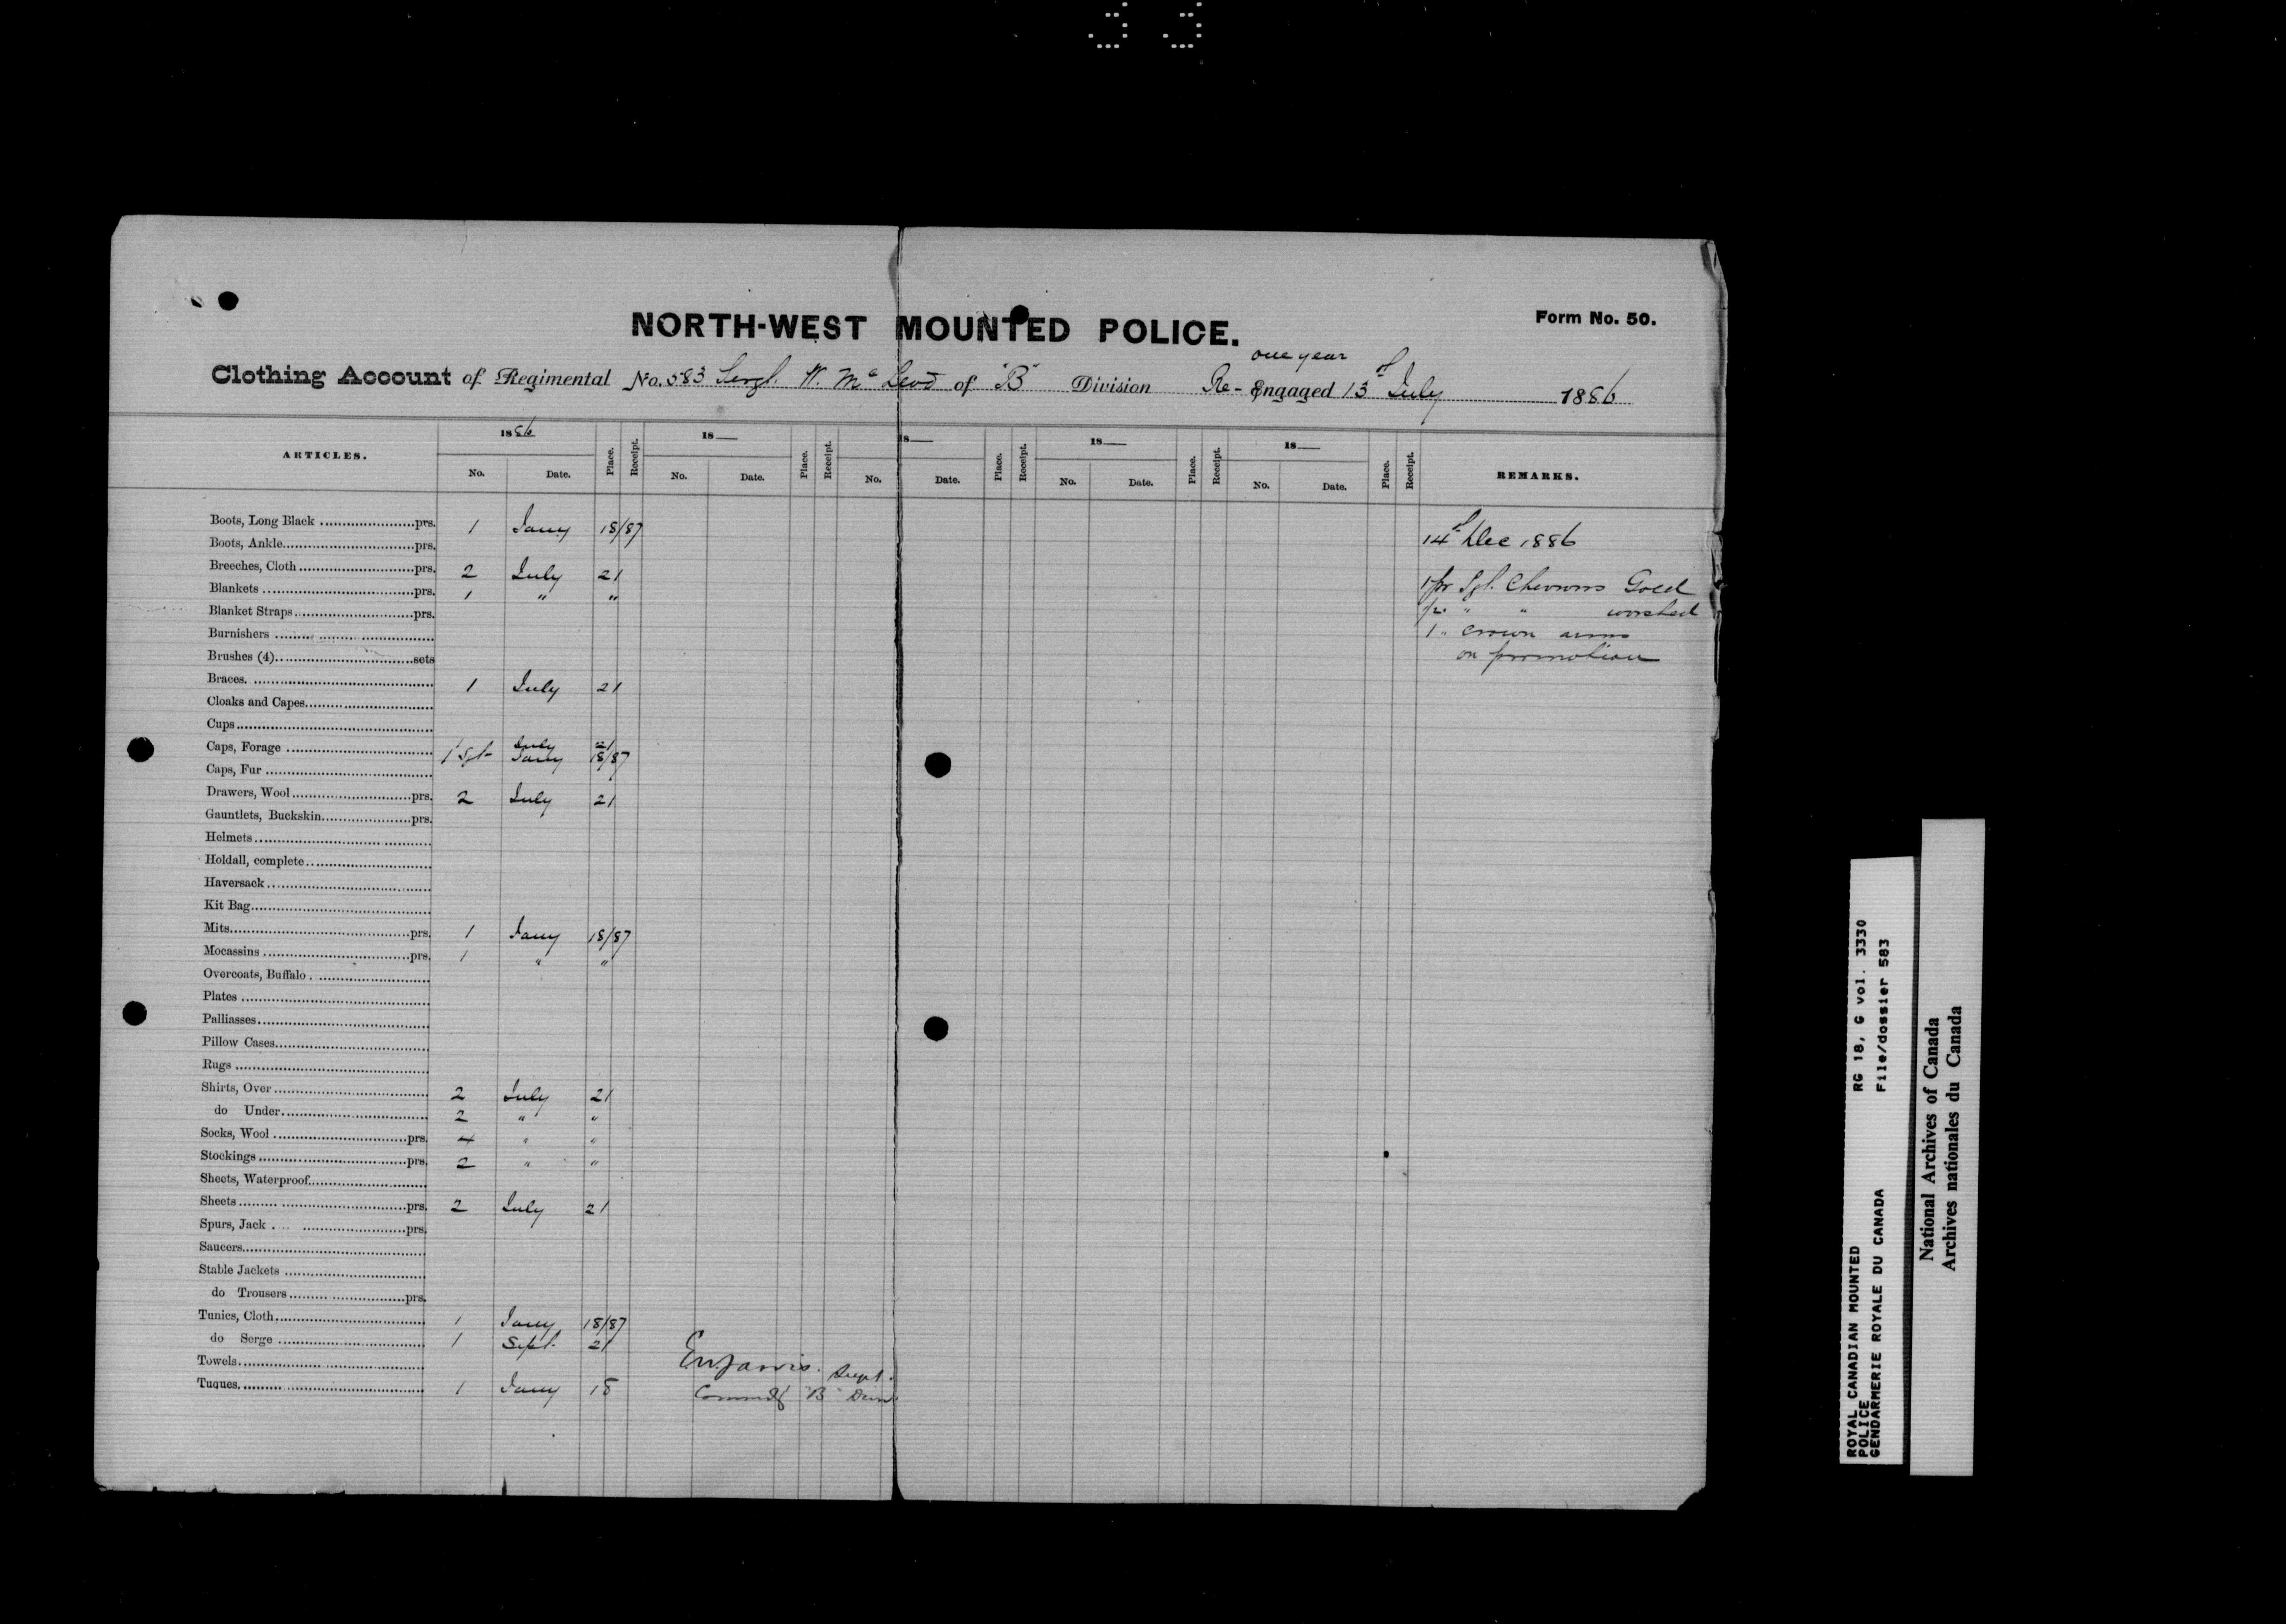 NORTH-WEST MOUNTED POLICE.
Form No. 50.
one year
Clothing Account of Regimental No. 583 Sergt. N. McLeod of "B" Division Re-Engaged 13th July 1886
ARTICLES.
1886 18 18 18 18
No. Date. Place. Receipt. No. Date. Place. Receipt. No. Date. Place. Receipt. No. Date. Place. Receipt. No. Date. Place. Receipt. REMARKS.
Boots, Long Black prs. 1 Jany 18/87
14th Dec 1886
Boots, Ankle prs.
Breeches, Cloth prs. 2 July 21
1 pr Sgt. Chevrons Gold
Blankets prs. 1 " "
pr. " " worsted
Blanket Straps prs.
1 " crown arms
Burnishers
on promotion
Brushes (4) sets
Braces. 1 July 21
Cloaks and Capes
Cups
Caps, Forage 1 Sgt July 21
Jany 18/87
Caps, Fur
Drawers, Wool prs. 2 July 21
Gauntlets, Buckskin prs.
Helmets
Holdall, complete
Haversack
Kit Bag
Mits prs. 1 Jany 18/87
Mocassins prs. 1 " "
Overcoats, Buffalo
Plates
Palliasses
Pillow Cases
Rugs
Shirts, Over 2 July 21
do Under 2 " "
Socks, Wool prs. 4 " "
Stockings prs. 2 " "
Sheets, Waterproof
Sheets prs. 2 July 21
Spurs, Jack prs.
Saucers
Stable Jackets
do Trousers prs.
Tunics, Cloth 1 Jany 18/87
do Serge 1 Sept. 21
Towels
Tuques 1 Jany 18
E.W. Jarvis. Supt.
Commdg "B" Divn.
ROYAL CANADIAN MOUNTED RG 18, G vol. 3330
POLICE
GENDARMERIE ROYALE DU CANADA File/dossier 583
National Archives of Canada
Archives nationales du Canada